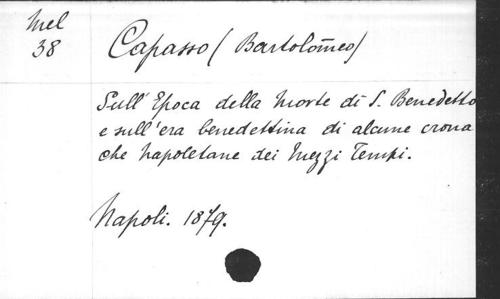 Mel
38
Capasso (Bartolomeo)
Sull'Epoca della Morte di S. Benedetto
e sull'era benedettina di alcune crona
che Napoletane dei Mezzi Tempi.
Napoli. 1879.